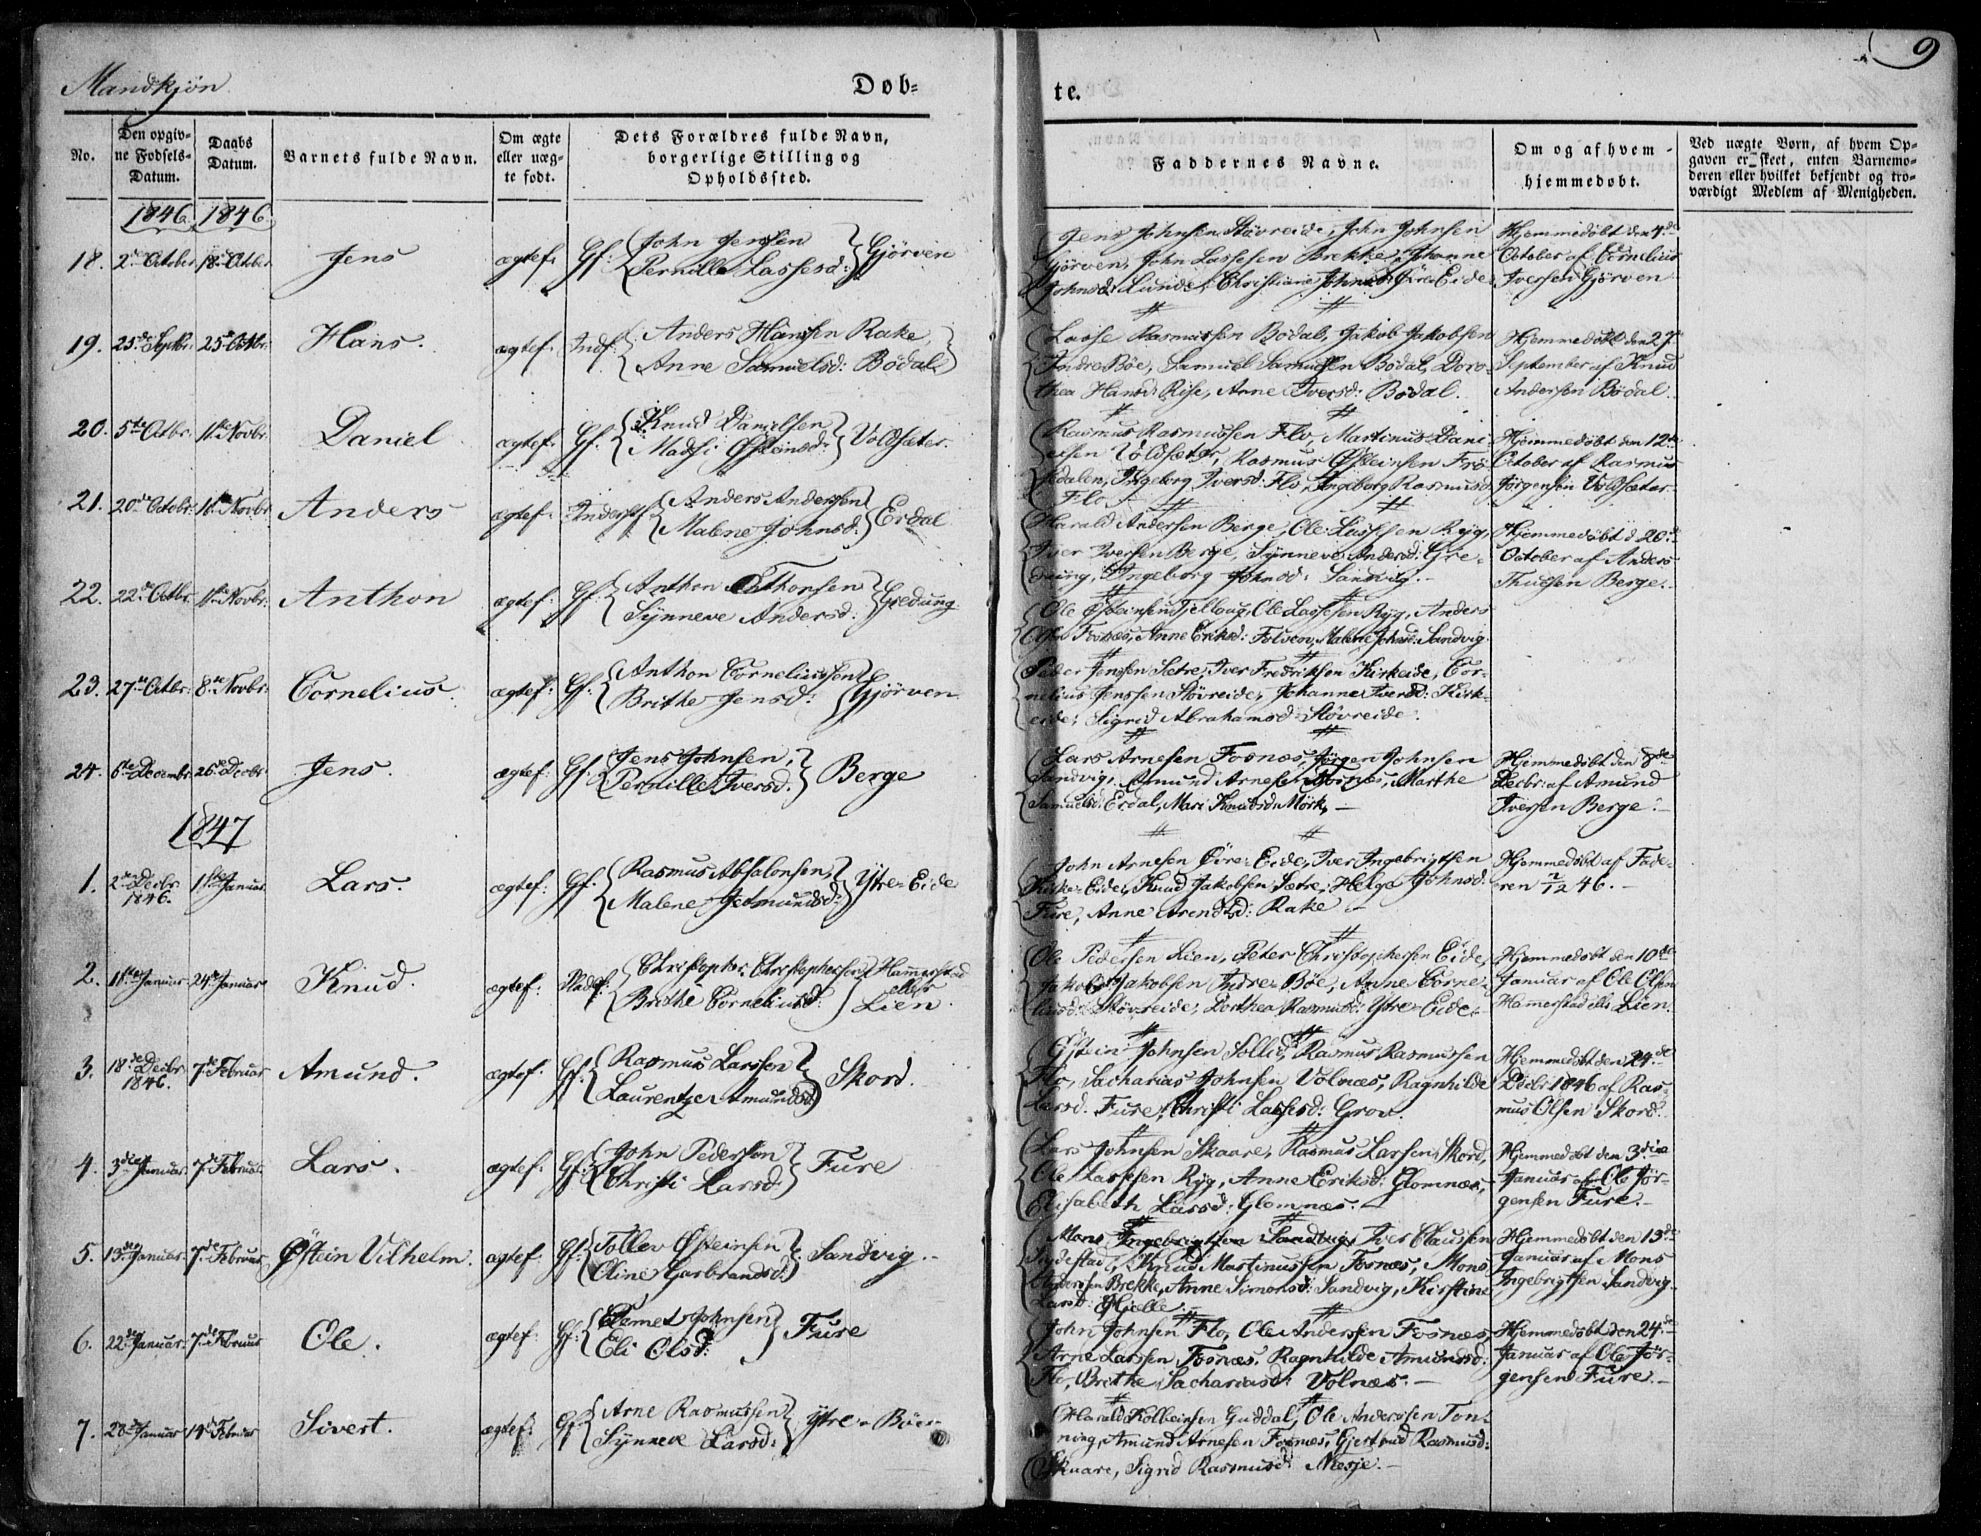 Mandkjøn.
Døb-
te.
9
No.
Den opgiv-
ne Fødsels-
Datum.
Daabs
Datum.
Barnets fulde Navn.
Om ægte
eller uæg-
te født.
Dets Forældres fulde Navn,
borgerlige Stilling og
Opholdssted.
Faddernes Navne.
Om og af hvem
hjemmedøbt.
Ved uægte Børn, af hvem Op-
gaven er skeet, enten Barnemo-
deren eller hvilket bekjendt og tro-
værdigt Medlem af Menigheden.
1846. 1846.
18. 2den Octbr 18de Octbr Jens ægtef: Gf: John Jensen
Pernille Lassesd: Gjörven
Jens Johnsen Stövreide, John Johnsen
Gjörven, John Lassesen Brekke, Johanne
Johnsd: Lunde, Christiane Johnsd: Öre-Eide
Hjemmedøbt den 4de
October af Cornelius
Iversen Gjörven
19. 25de Septbr: 25de Octbr: Hans. ægtef: Indf: Anders Hansen Rake,
Anne Samuelsd: Bødal
Lasse Rasmussen Bødal, Jakob Jakobsen
Indre Böe, Samuel Samuelsen Bødal, Doro-
thea Hansd: Rise, Anne Iversd: Bødal.
Hjemmedøbt den 27de
September af Knud
Andersen Bødal.
20. 5te Octbr: 1ste Novbr: Daniel. ægtef: Gf: Knud Danielsen
Madsi Østeinsd: Voldsæter.
Rasmus Rasmussen Flo, Martinus Dani-
elsen Voldsæter, Rasmus Østeinsen Frö-
sedalen, Ingeborg Iversd: Flo, Ingeborg Rasmusd:
Flo
Hjemmedøbt den 12te
October af Rasmus
Jørgensen Voldsæter.
21. 20de Octobr: 1ste Novbr: Anders ægtef: Inderst Anders Andersen
Malene Johnsd: Erdal
Harald Andersen Berge, Ole Lassesen Ryg,
Iver Iversen Berge, Synneve Andersd: Gre-
dung, Ingeborg Johnsd: Sandvig.
Hjemmedøbt d 20de
October af Anders
Berge.
22. 22de Octbr: 1ste Novbr: Anthon ægtef: Gf: Anthon Anthonsen
Synneve Andersd: Gredung.
Ole Østeinsen Tjellaug, Ole Lassesen Ryg, Anders
Fosnæs, Anne Eriksd: Folven, Malene Johnsd: Sandvig.
23. 27de Octbr: 8de Novbr: Cornelius. ægtef: Gf: Anthon Corneliussen
Brithe Jensd: Gjörven
Peder Jensen Setre, Iver Fredriksen Kirkeide, Cor-
nelius Jenssen Stövreide, Johanne Iversd: Kirk-
eide, Sigrid Abrahamsd: Stövreide.
24. 6te Decembr 26de Decbr: Jens. ægtef: Gf: Jens Johnsen,
Pernille Iversd. Berge
Lars Arnesen Fosnæs, Jörgen Johnsen
Sandvig, Amund Arnesen Fosnæs, Marthe
Samuelsd: Erdal, Mari Knudsd: Mörk,
Hjemmedøbt den 8de
Decbr: af Amund
Iversen Berge.
1847
1. 2den Decbr:
1846. 1ste Januar. Lars. ægtef: Gf: Rasmus Absalonsen,
Malene Gudmundsd: Ytre-Eide
John Arnesen Öire-Eide, Iver Ingebrigtsen
Kirke-Eide, Knud Jakobsen Setre, Helge Johnsd:
Fure, Anne Arendtsd: Rake
Hjemmedøbt af Fade-
ren 2/12 46.
2. 24de Januar Knud. ægtef: Pladsf: Christopher Christophersen
Brithe Corneliusd: Hamerstad
eller
Lien.
Ole Pedersen Lien, Peter Christophersen Eide,
Jakob Jakobsen Indre-Böe, Anne Corne-
liusd: Stövreide, Dorthea Rasmusd: Ytre-Eide.
Hjemmedøbt den 10de
Januar af Ole Olsen
Hamerstad ell: Lien.
3. 18de Decbr
1846. 7de Februar Amund. ægtef: Gf: Rasmus Larssen
Laurentze Amundsd: Skord.
Østein Johnsen Sollid, Rasmus Rasmussen
Flo, Sacharias Johnsen Volnæs, Ragnhilde
Larsd. Fure, Christi Lassesd: Grov.
Hjemmedøbt den 24de
Decbr 1846 af Ras-
mus Olsen Skord.
4. 3die Januar 7de Februar. Lars. ægtef: Gf: John Pedersen
Christi Larsd: Fure
Lars Johnsen Skaare, Rasmus Larsen Skord,
Ole Lassesen Ryg, Anne Eriksd: Glomnæs,
Elisabeth Larsd: Glomnæs.
Hjemmedøbt den 3die
Januar af Ole Jör-
gensen Fure.
5. 13de Januar. 7de Februar Østein Vilhelm. ægtef Gf: Tollev Østeinsen
Oline Garbrandsd: Sandvig.
Mons Ingebrigtsen Sandvig, Iver Clausen
Knud Martinussen Fosnæs, Mons
Andersen Brekke, Anne Simonsd: Sandvig, Kirstine
Larsd: Hjelle.
Hjemmedøbt den 13de
Januar af Mons
Ingebrigtsen Sandvig.
6. 22de Januar. 7de Februar Ole. ægtef: Gf: Johnsen
Eli Olsd: Fure
John Johnsen Flo, Ole Andersen Fosnæs,
Arne Larsen Fosnæs. Ragnhilde Amundsd:
Flo, Brithe Sachariasd: Volnæs.
Hjemmedøbt den 24de
Januar af Ole Jör-
gensen Fure.
7. 28de Januar 14de Februar Sivert. ægtef: Gf Arne Rasmussen
Synneve Larsd: Ytre-Böe
Harald Kolbeinsen Guddal, Ole Anderssen Ton-
ning, Amund Arnesen Fosnæs, Gjertrud Rasmusd:
Skaare, Sigrid Rasmusd: Mesje.